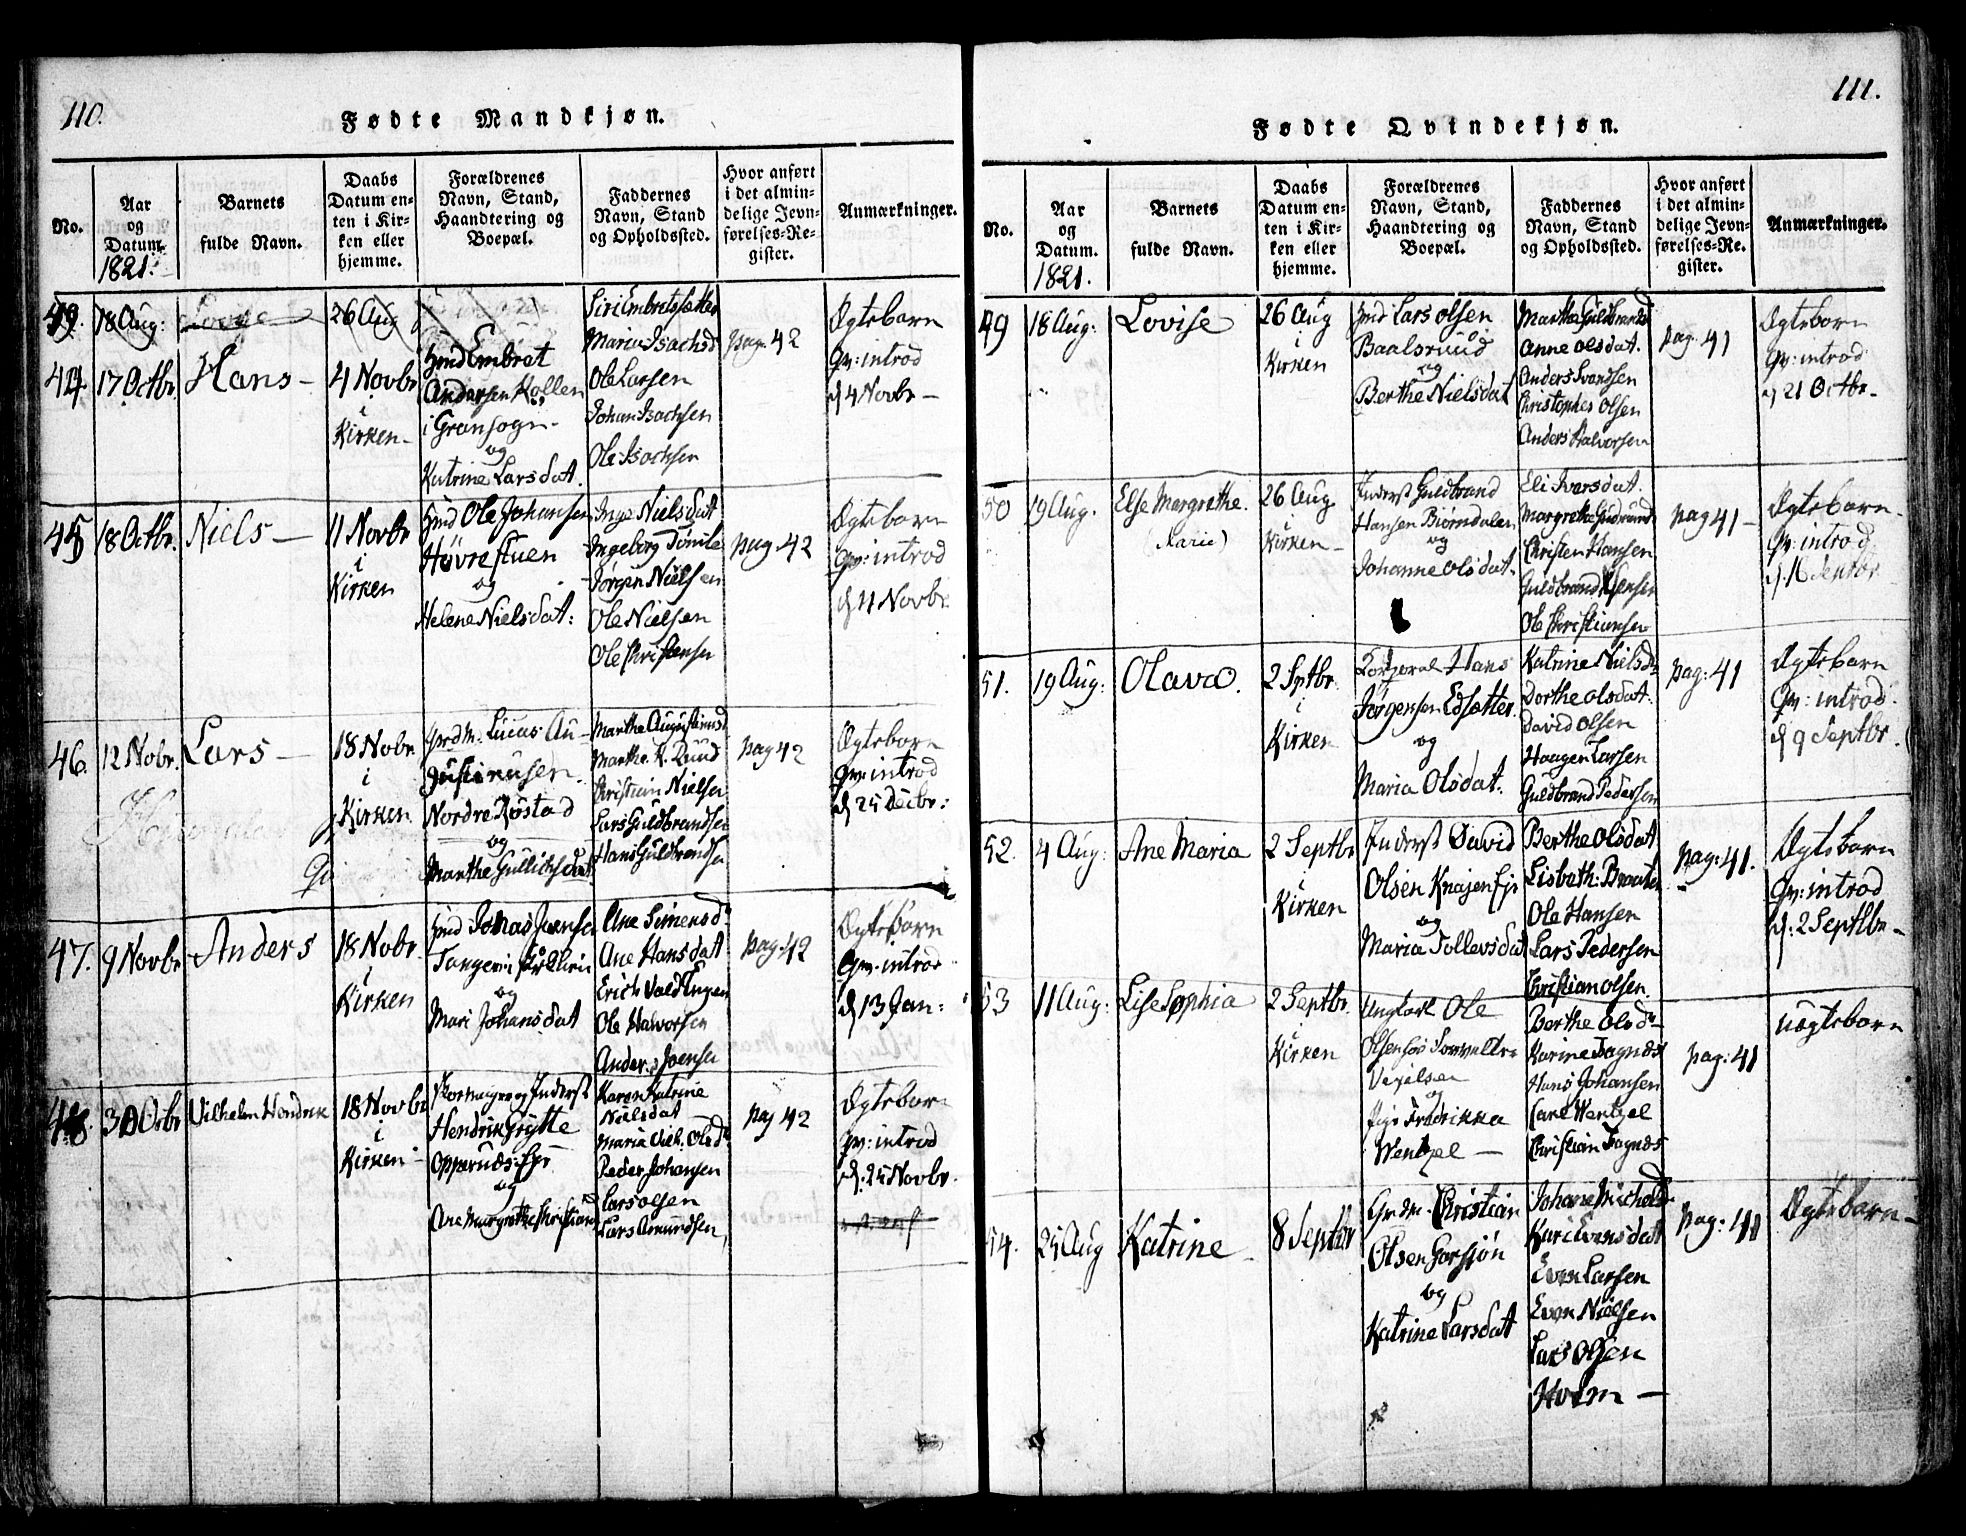 110.
Fødte Mandkjøn.
No.
Aar
og
Datum.
1821.
Barnets
fulde Navn.
Daabs
Datum en-
ten i Kir-
ken eller
hjemme.
Forældrenes
Navn, Stand,
Haandtering og
Boepæl.
Faddernes
Navn, Stand
og Opholdssted.
Hvor anført
i det almin-
delige Jevn-
førelses-Re-
gister.
Anmærkninger.
49. 18 Aug: 26 Aug
44. 17 Octbr. Hans
4 Novbr
i
Kirken
Gmd Embret
Andersen Kollen
i Gransogn
og
Katrine Larsdat.
Siri Embretsætter
Maria Isachsd
Ole Larsen
Johan Isachsen
Ole Isachsen
pag. 42
Ægtebarn
Qv: introd
d 4 Novbr
45 18 Octbr. Niels
11 Novbr
i
Kirken
Gmd Ole Johansen
Høvrestuen
og
Helene Nielsdat:
Inge Nielsdat
Ingeborg Tømte
Jørgen Nielsen
Ole Nielsen
Ole Christensen
pag. 42
Ægtebarn
Qv: introd
d 11 Novbr.
46. 12 Nobr. Lars
18 Nobr.
i
Kirken
Lucas Au-
gustinusen
Nordre Røstad
og
Marthe Gullichsdat.
Marthe Augustinusd
Marthe K. Ruud
Christian Nielsen
Lars Guldbrandsen
Hans Guldbrandsen
pag 42
Ægtebarn
Qv: introd
d 25 Decbr:
47. 9 Novbr Anders
18 Nobr.
i
Kirken
Gmd Jonas Joensen
Tangen
og
Mari Johansdat
Ane Simensd
Ane Hansdat
Erich Vold Engen
Ole Halvorsen
Anders Joensen
pag. 42
Ægtebarn
Qv: introd
d 13 Jan:
48. 30 Octbr Vilhelm Hendrik
18 Novbr
i
Kirken
Inderst
Hendrik Grytte
Opperuds Eje
og
Ane Margrethe Christiansd
Karen Katrine
Nielsdat
Maria Vilh. Olsd
Peder Johansen
Lars Olsen
Lars Amundsen
pag 42
Ægtebarn
Qv: introd
d. 25 Novbr.
111.
Fødte Qvindekjøn.
No.
Aar
og
Datum.
1821.
Barnets
fulde Navn.
Daabs
Datum en-
ten i Kir-
ken eller
hjemme.
Forældrenes
Navn, Stand,
Haandtering og
Boepæl.
Faddernes
Navn, Stand
og Opholdssted.
Hvor anført
i det almin-
delige Jevn-
førelses-Re-
gister.
Anmærkninger.
49 18 Aug: Lovise
26 Aug
i
Kirken
Gmd Lars Olsen
Baalsruud
og
Berthe Nielsdat
Marthe Guldbrandsd
Anne Olsdat.
Anders Svendsen
Christopher Olsen
Anders Halvorsen
pag. 41
Ægtebarn
Qv: introd
d 21 Octbr.
50 19 Aug. Else Margrethe.
(Karie)
26 Aug
i
Kirken
Inderst Guldbrand
Hansen Biørndalen
og
Johanne Olsdat.
Eli Iversdat.
Margrethe Gudmund
Christen Hansen
Guldbrand
Ole Christiansen
pag 41
Ægtebarn
Qv: introd
d. 16 Septbr
51. 19 Aug: Olava.
2 Sptbr.
i
Kirken
Corporal Hans
Jørgensen Edsætter.
og
Maria Olsdat.
Katrine Nielsd
Dorthe Olsdat.
David Olsen
Haagen Larsen
Guldbrand Pedersen
pag: 41
Ægtebarn
Qv: introd.
d 9 Septbr.
52. 4 Aug: Ane Maria
2 Septbr
i
Kirken
Inderst David
Olsen Knajen Eje
og
Maria Tollevsdat
Berthe Olsdat
Lisbeth: Braaten
Ole Hansen
Lars Pedersen
Christian Olsen
pag: 41.
Ægtebarn
Qv: introd
d. 2 Septbr
53 11 Aug: Lise Sophia
2 Septbr.
i
Kirken
Ungkarl Ole
Olsen
og
Pige Fredrikka
Wentzel
Berthe Olsd
Karine Fagnæs
Hans Johansen
Carl Wentzel
Christian Fagnæs
pag: 41
uægtebarn
54. 25 Aug Katrine
8 Septbr
Gmdm. Christian
Olsen Gorsjøn
og
Katrine Larsdat
Johane Michelsd.
Kari Evensdat
Even Larsen
Even Nielsen
Lars Olsen
Holm
pag: 41
Ægtebarn